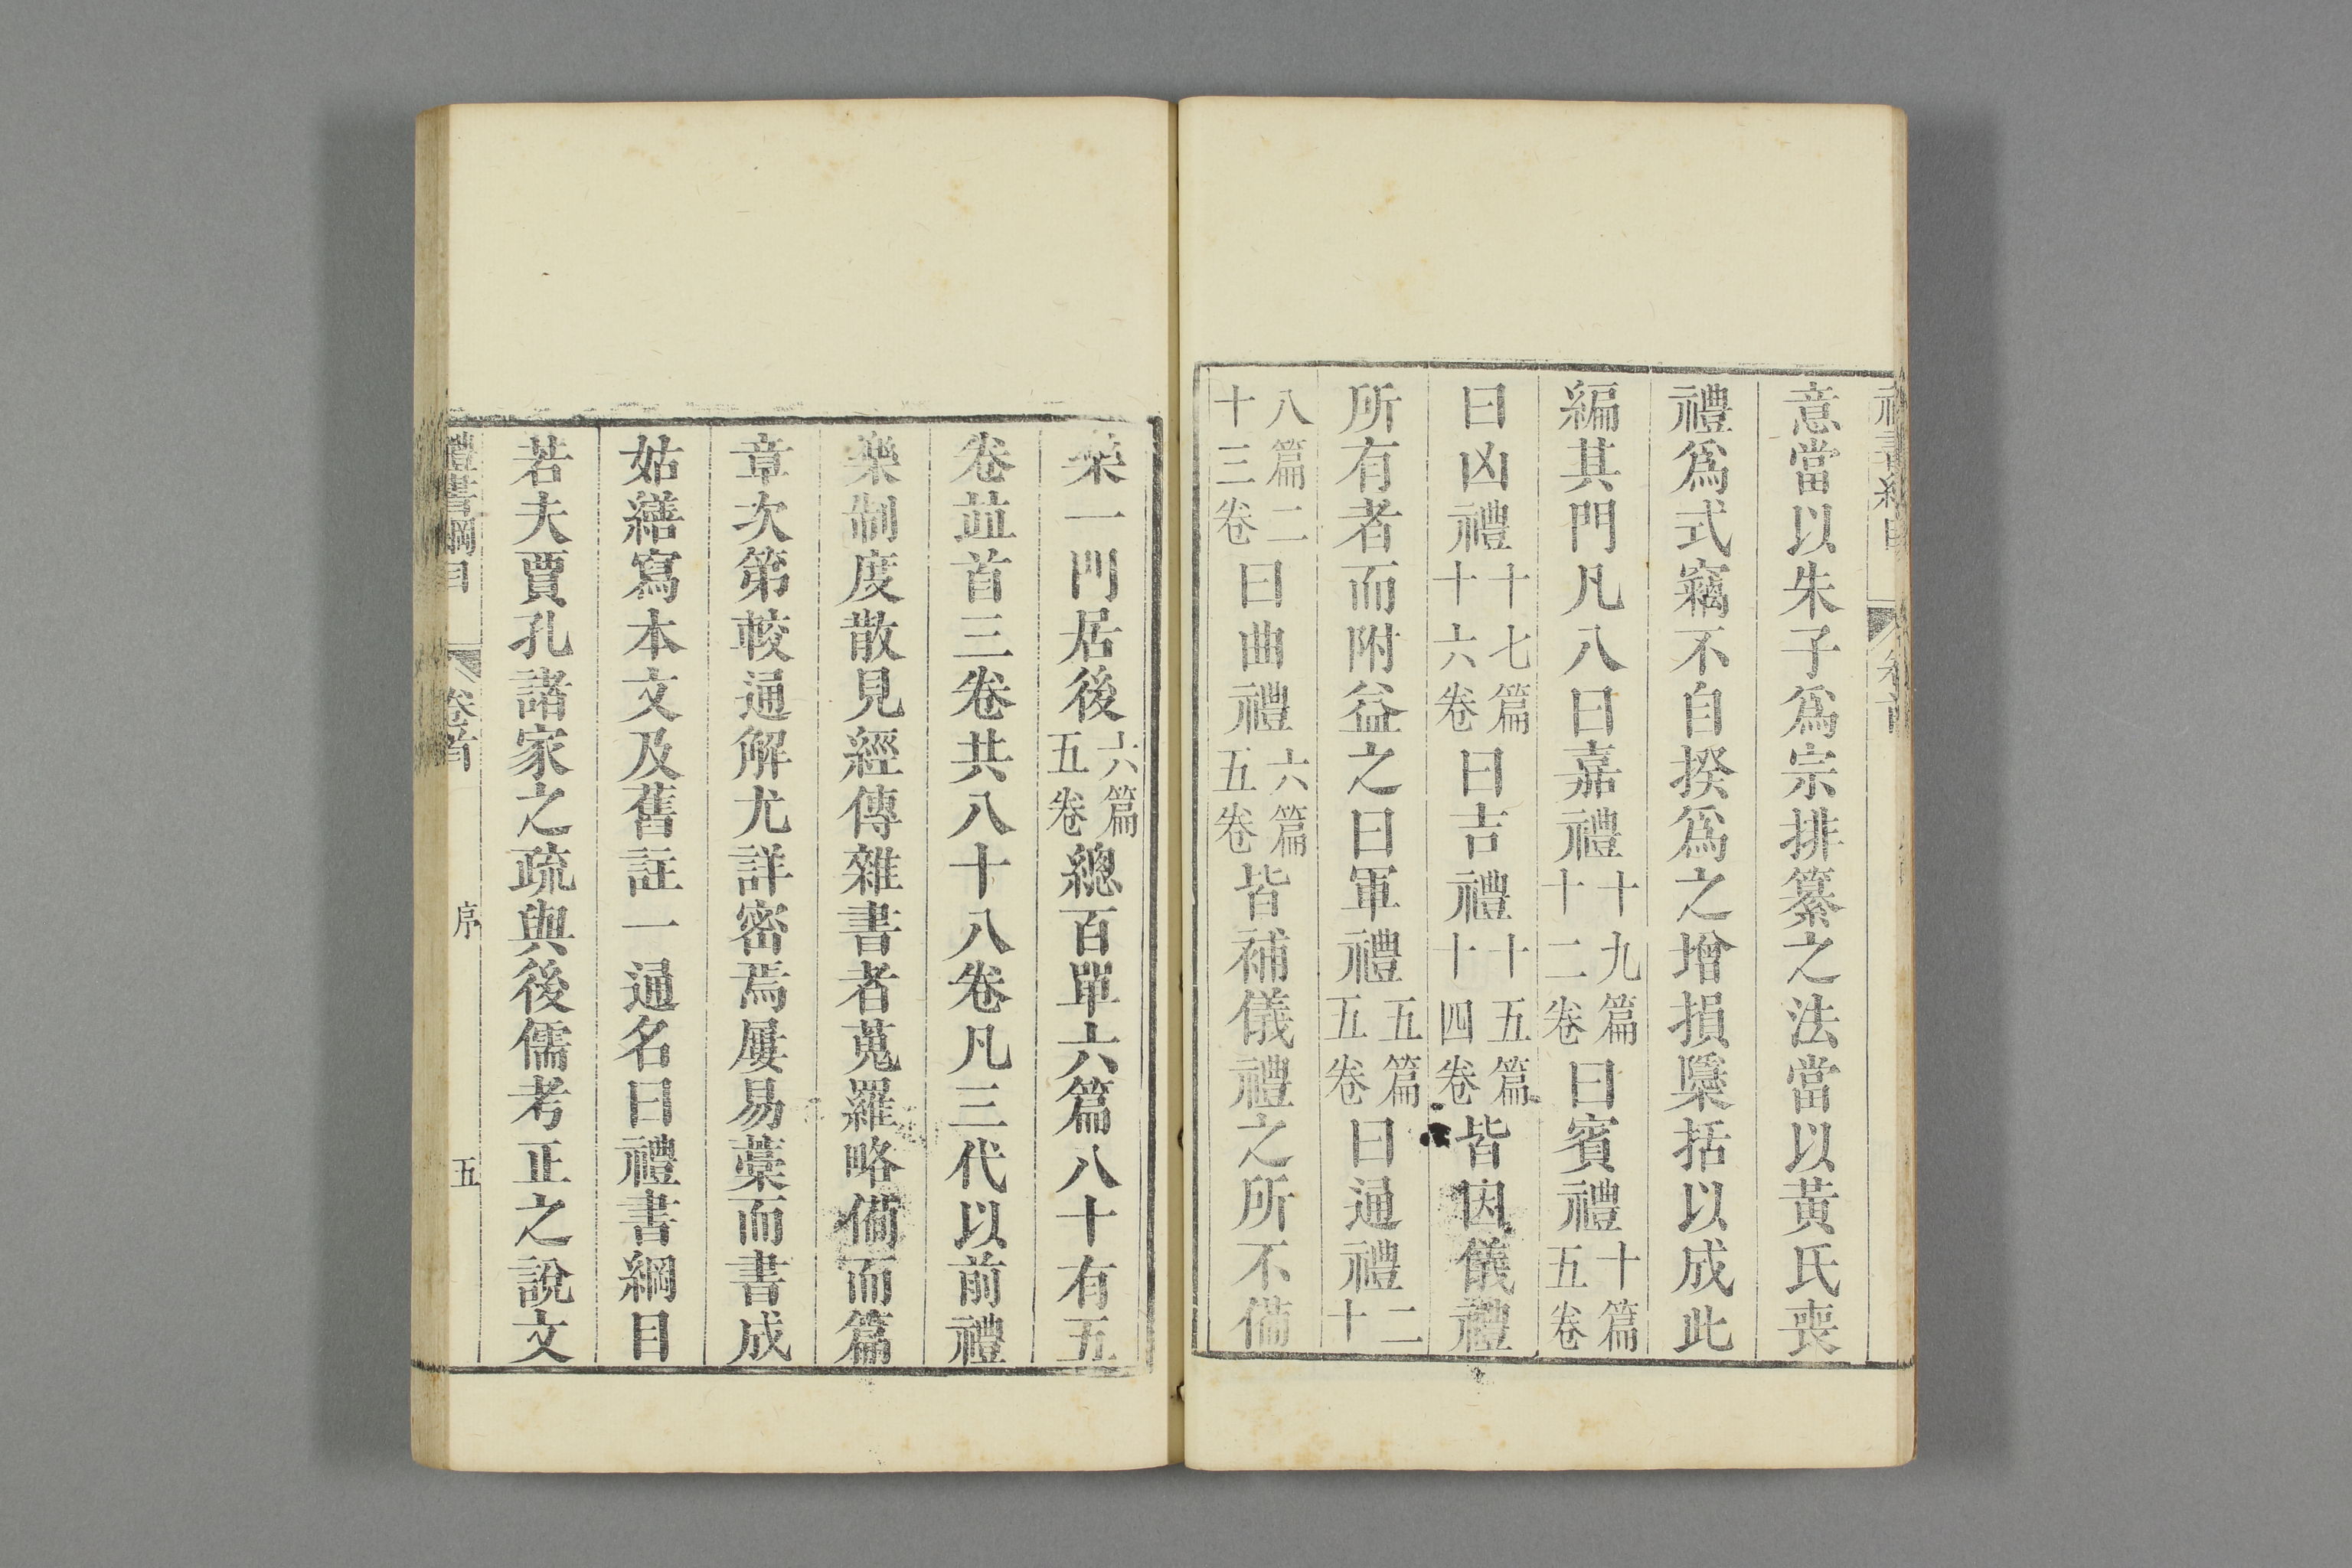 意當以朱子爲宗排纂之法當以黃氏喪
禮爲式竊不自揆爲之增損檃括以成此
編其門凡八曰嘉禮十九篇十二卷曰賓禮十篇五卷
曰凶禮十七篇十六卷曰吉禮十五篇十四卷皆因儀禮
所有者而附益之曰軍禮五篇五卷曰通禮二十
八篇二十三卷曰曲禮六篇五卷皆補儀禮之所不備
樂一門居後六篇五卷總百單六篇八十有五
卷並首三卷共八十八卷凡三代以前禮
樂制度散見經傳雜書者蒐羅略備而篇
章次第較通解尤詳密焉屢易藁而書成
姑繕寫本文及舊註一通名曰禮書綱目
若夫賈孔諸家之疏與後儒考正之說文
禮書綱目 卷首 序 五